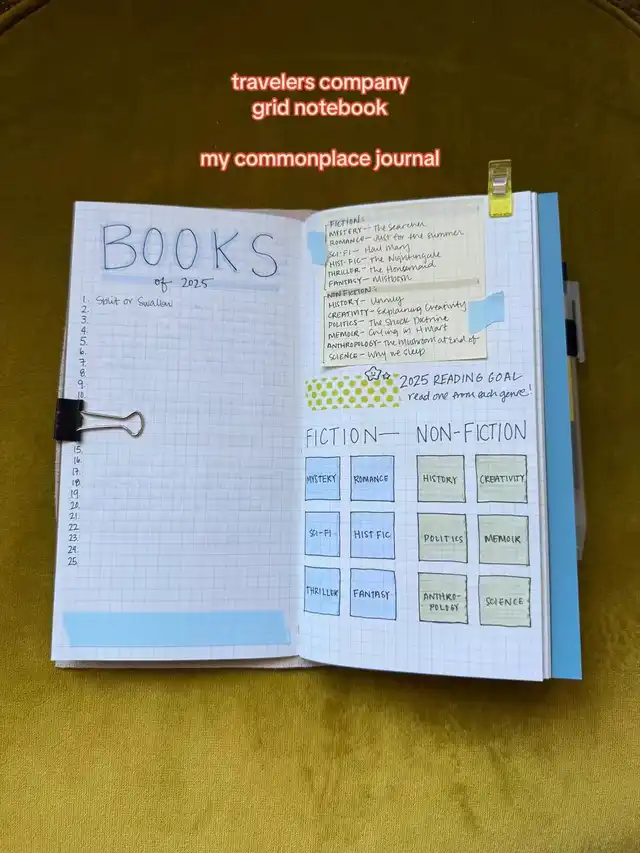 travelers company
grid notebook
my commonplace journal
BOOKS
of 2025
1. Split or Swallow
2.
3.
4.
5.
6.
7.
8.
9.
10.
15.
16.
17.
18.
19.
20.
21.
22.
23.
24.
25.
FICTION:
MYSTERY- The Searcher
ROMANCE- Just for the Summer
SCI-FI- Hail Mary
HIST-FIC- The Nightingale
THRILLER- The Housemaid
FANTASY- Mistborn
NONFICTION:
HISTORY- Unruly
CREATIVITY- Explaining Creativity
POLITICS- The Shock Doctrine
MEMOIR- Crying in H Mart
ANTHROPOLOGY- The Mushroom at End of
SCIENCE- Why We Sleep
2025 READING GOAL
read one from each genre!
FICTION—
MYSTERY
ROMANCE
SCI-FI
HIST FIC
THRILLER
FANTASY
NON-FICTION
HISTORY
CREATIVITY
POLITICS
MEMOIR
ANTHRO-
POLOGY
SCIENCE